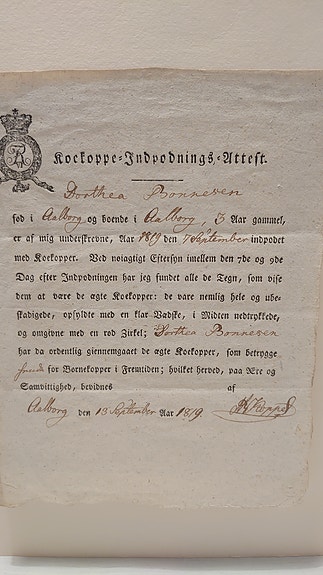 Kockoppe-Indpodnings-Attest.
Dorthea Bonnesen
fød i Aalborg og boende i Aalborg, 3 Aar gammel,
er af mig underskrevne, Aar 1819 den 4 September indpodet
med Kockopper. Ved nøiagtigt Eftersyn imellem den 7de og 9de
Dag efter Indpodningen har jeg fundet alle de Tegn, som vise
dem at være de ægte Kockopper: de vare nemlig hele og ube-
skadigede, opfyldte med en klar Vædske, i Midten nedtrykkede,
og omgivne med en rød Zirkel; Dorthea Bonnesen
har da ordentlig giennemgaaet de ægte Kockopper, som betrygge
for Børnekopper i Fremtiden; hvilket herved, paa Ære og
Samvittighed, bevidnes af
Aalborg den 13 September Aar 1819.